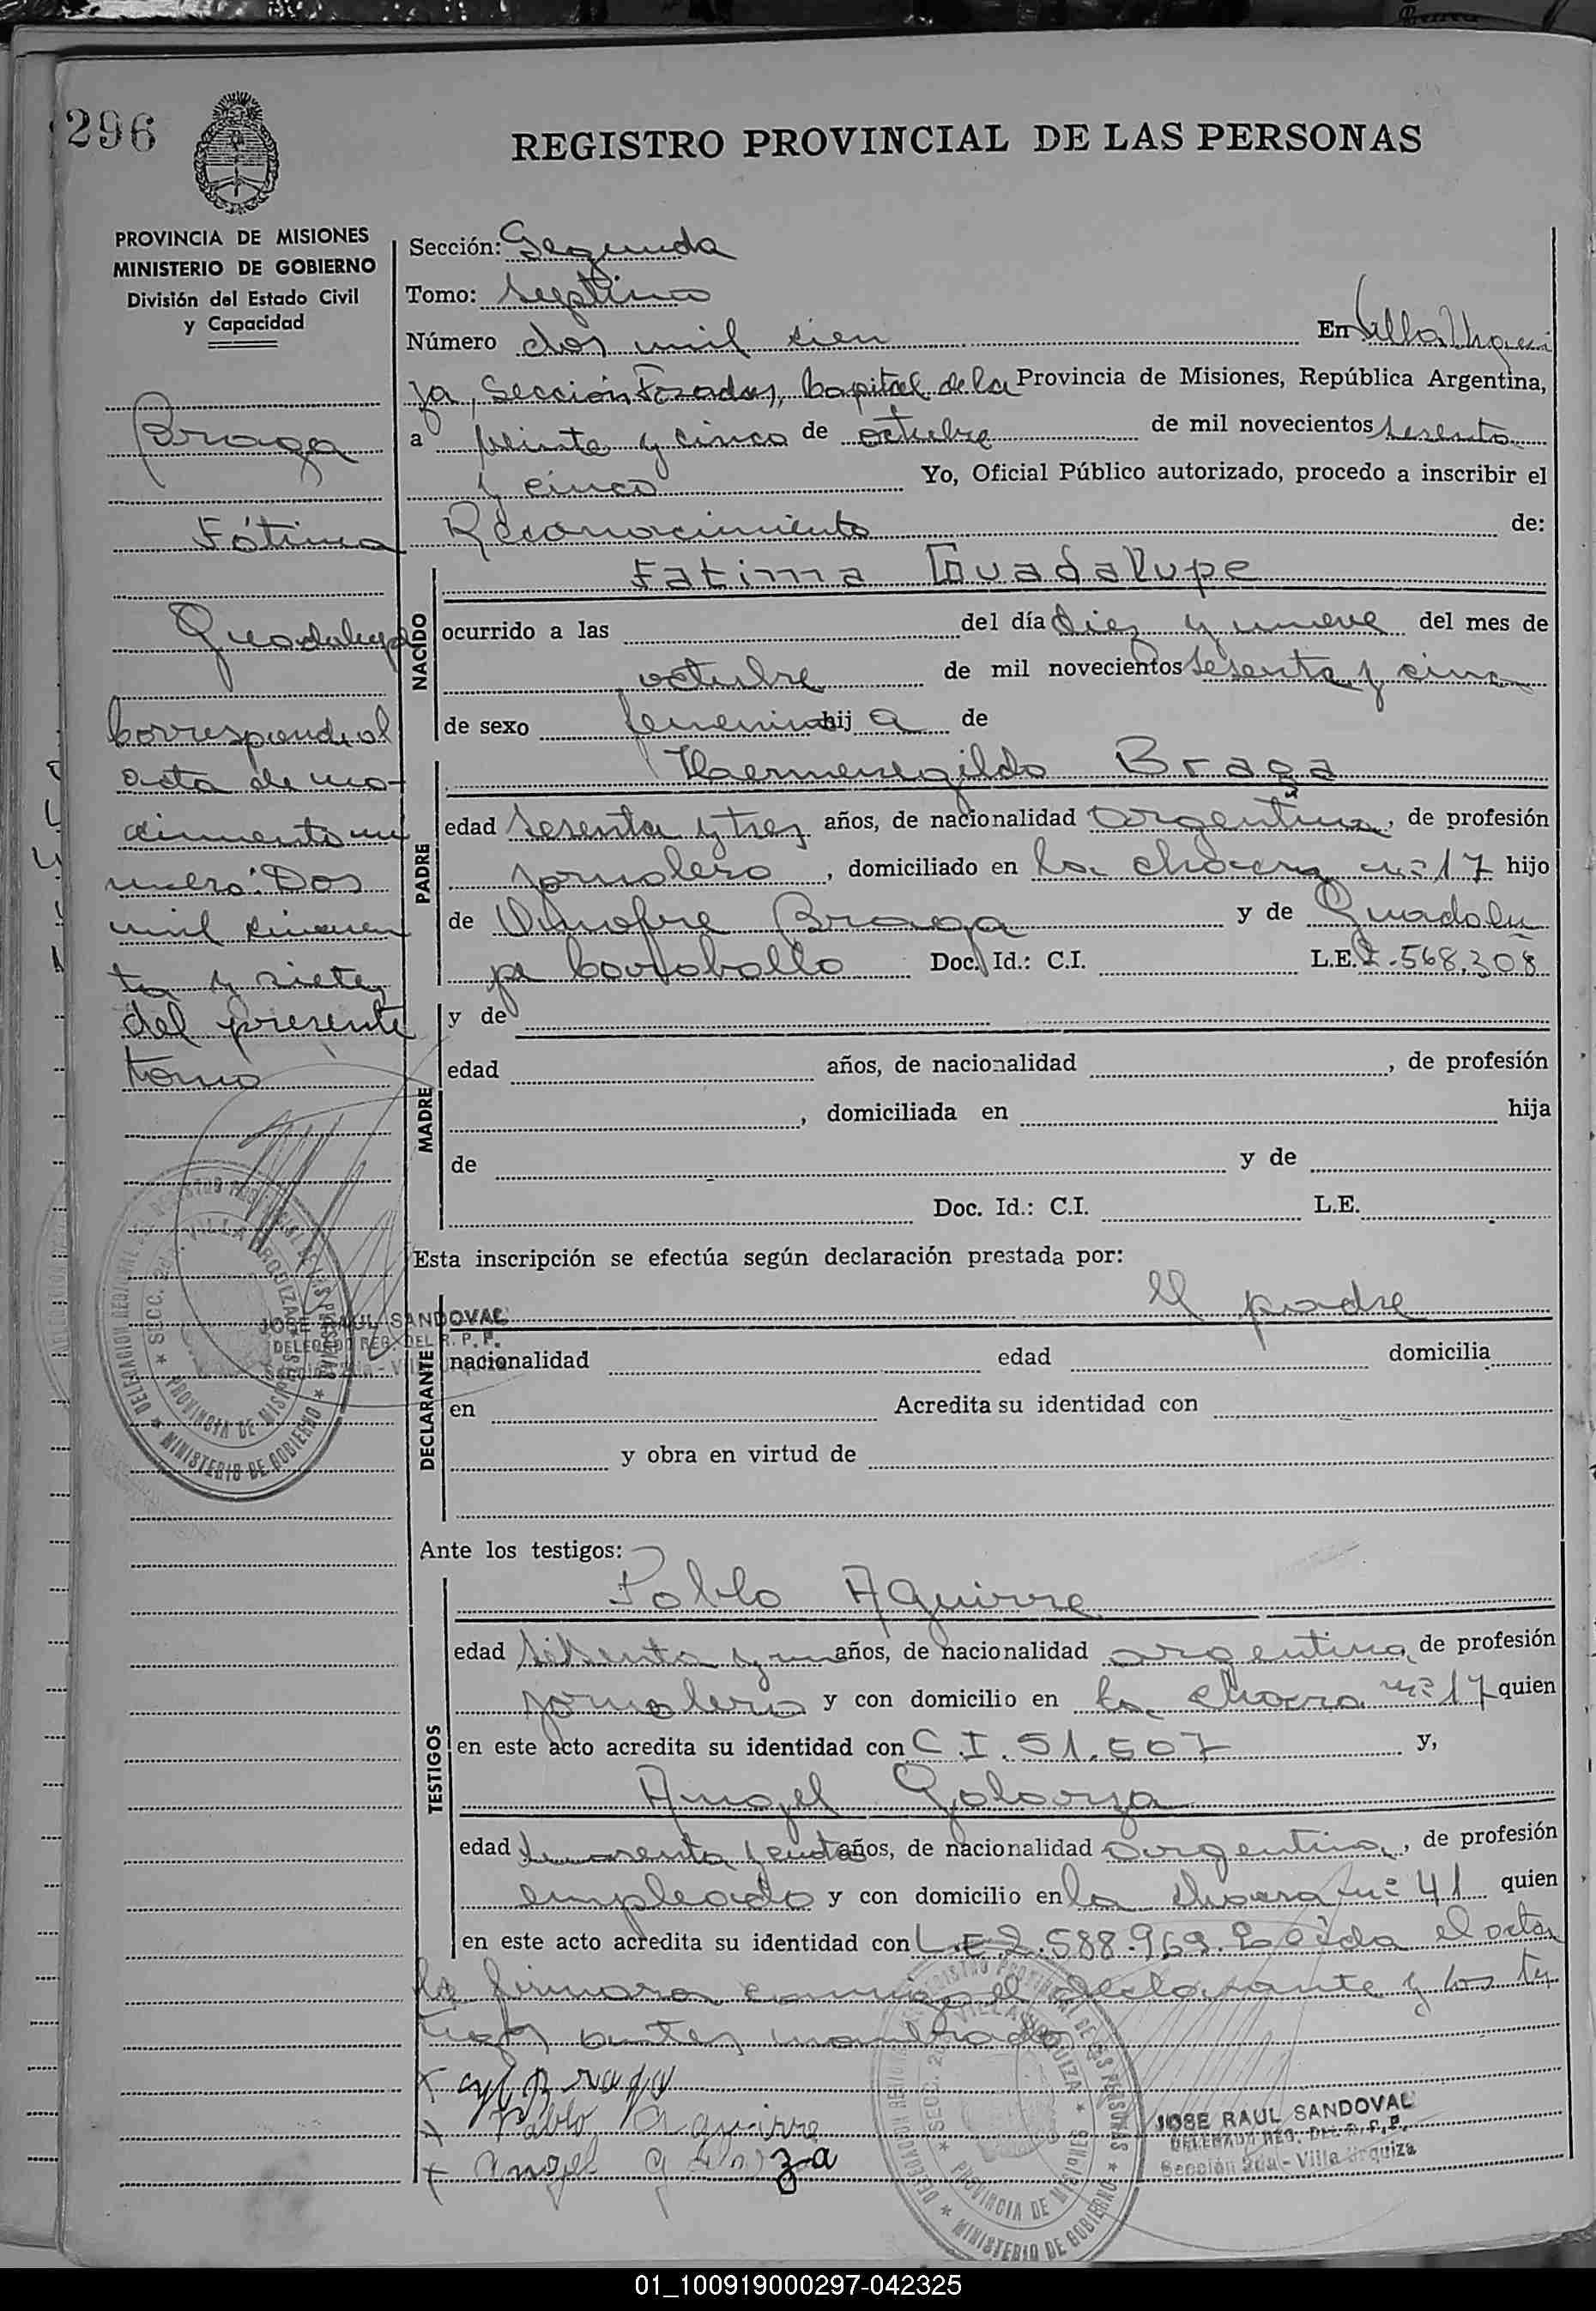 296
REGISTRO PROVINCIAL DE LAS PERSONAS
PROVINCIA DE MISIONES
MINISTERIO DE GOBIERNO
División del Estado Civil
y Capacidad
Braga
Fátima
Guadalupe
Corresponde al
acta de na-
cimiento nu
mero: Dos
mil cincuen
ta y siete,
del presente
tomo
Sección: Segunda
Tomo: Septimo
Número dos mil cien En Villa Urqui
za, Sección Segunda, Capital de la Provincia de Misiones, República Argentina,
a veinte y cinco de octubre de mil novecientos sesenta
y cinco Yo, Oficial Público autorizado, procedo a inscribir el
Reconocimiento de:
NACIDO
Fatima Guadalupe
ocurrido a las del día diez y nueve del mes de
octubre de mil novecientos sesenta y cinco
de sexo femenino hij a de
PADRE
Hermenegildo Braga
edad sesenta y tres años, de nacionalidad argentina, de profesión
jornalero, domiciliado en la chacra nº 17 hijo
de Onofre Braga y de Guadalu
pe Caraballo Doc. Id.: C.I. L.E. 2.568.308
MADRE
y de
edad años, de nacionalidad , de profesión
, domiciliada en hija
de y de
Doc. Id.: C.I. L.E.
Esta inscripción se efectúa según declaración prestada por:
DECLARANTE
El padre
nacionalidad edad domicilia
en Acredita su identidad con
y obra en virtud de
JOSE RAUL SANDOVAL
DELEGADO REG. DEL R. P. P.
Ante los testigos:
TESTIGOS
Pablo Aguirre
edad sesenta y un años, de nacionalidad argentina, de profesión
jornalero y con domicilio en la chacra nº 17 quien
en este acto acredita su identidad con C.I. 51.507 y,
Angel Galarza
edad años, de nacionalidad argentina, de profesión
empleado y con domicilio en la chacra nº 41 quien
en este acto acredita su identidad con L.E 2.588.969. Leída el acta
la firmaron conmigo el declarante y los tes
tigos antes nombrados
x Braga
x Pablo Aguirre
x Angel galarza
JOSE RAUL SANDOVAL
DELEGADO REG. DEL R. P. P.
Sección 2da - Villa Urquiza
DELEGACION REGIONAL DEL REGISTRO PROVINCIAL DE LAS PERSONAS
SECC. 2da. VILLA URQUIZA
PROVINCIA DE MISIONES
MINISTERIO DE GOBIERNO
01_100919000297-042325